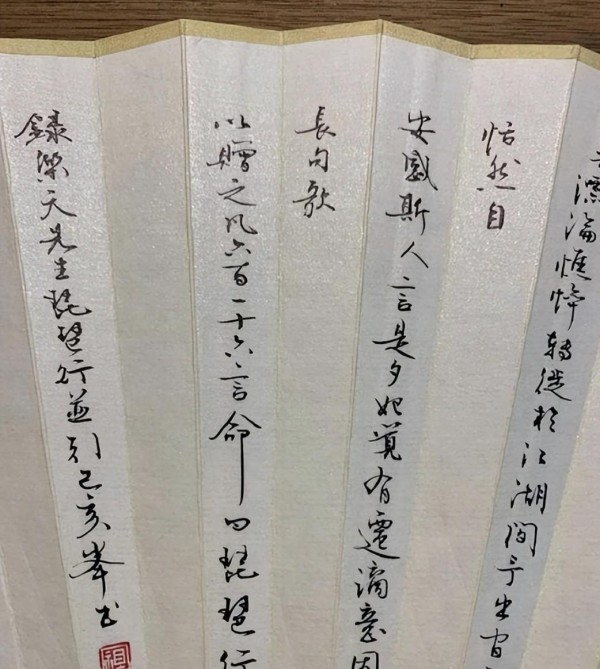 漂淪憔悴轉徙於江湖間予出官
恬然自
安感斯人言是夕始覺有遷謫意因
長句歌
以贈之凡六百一十六言命曰琵琶行
錄樂天先生琵琶行並引己亥峯书